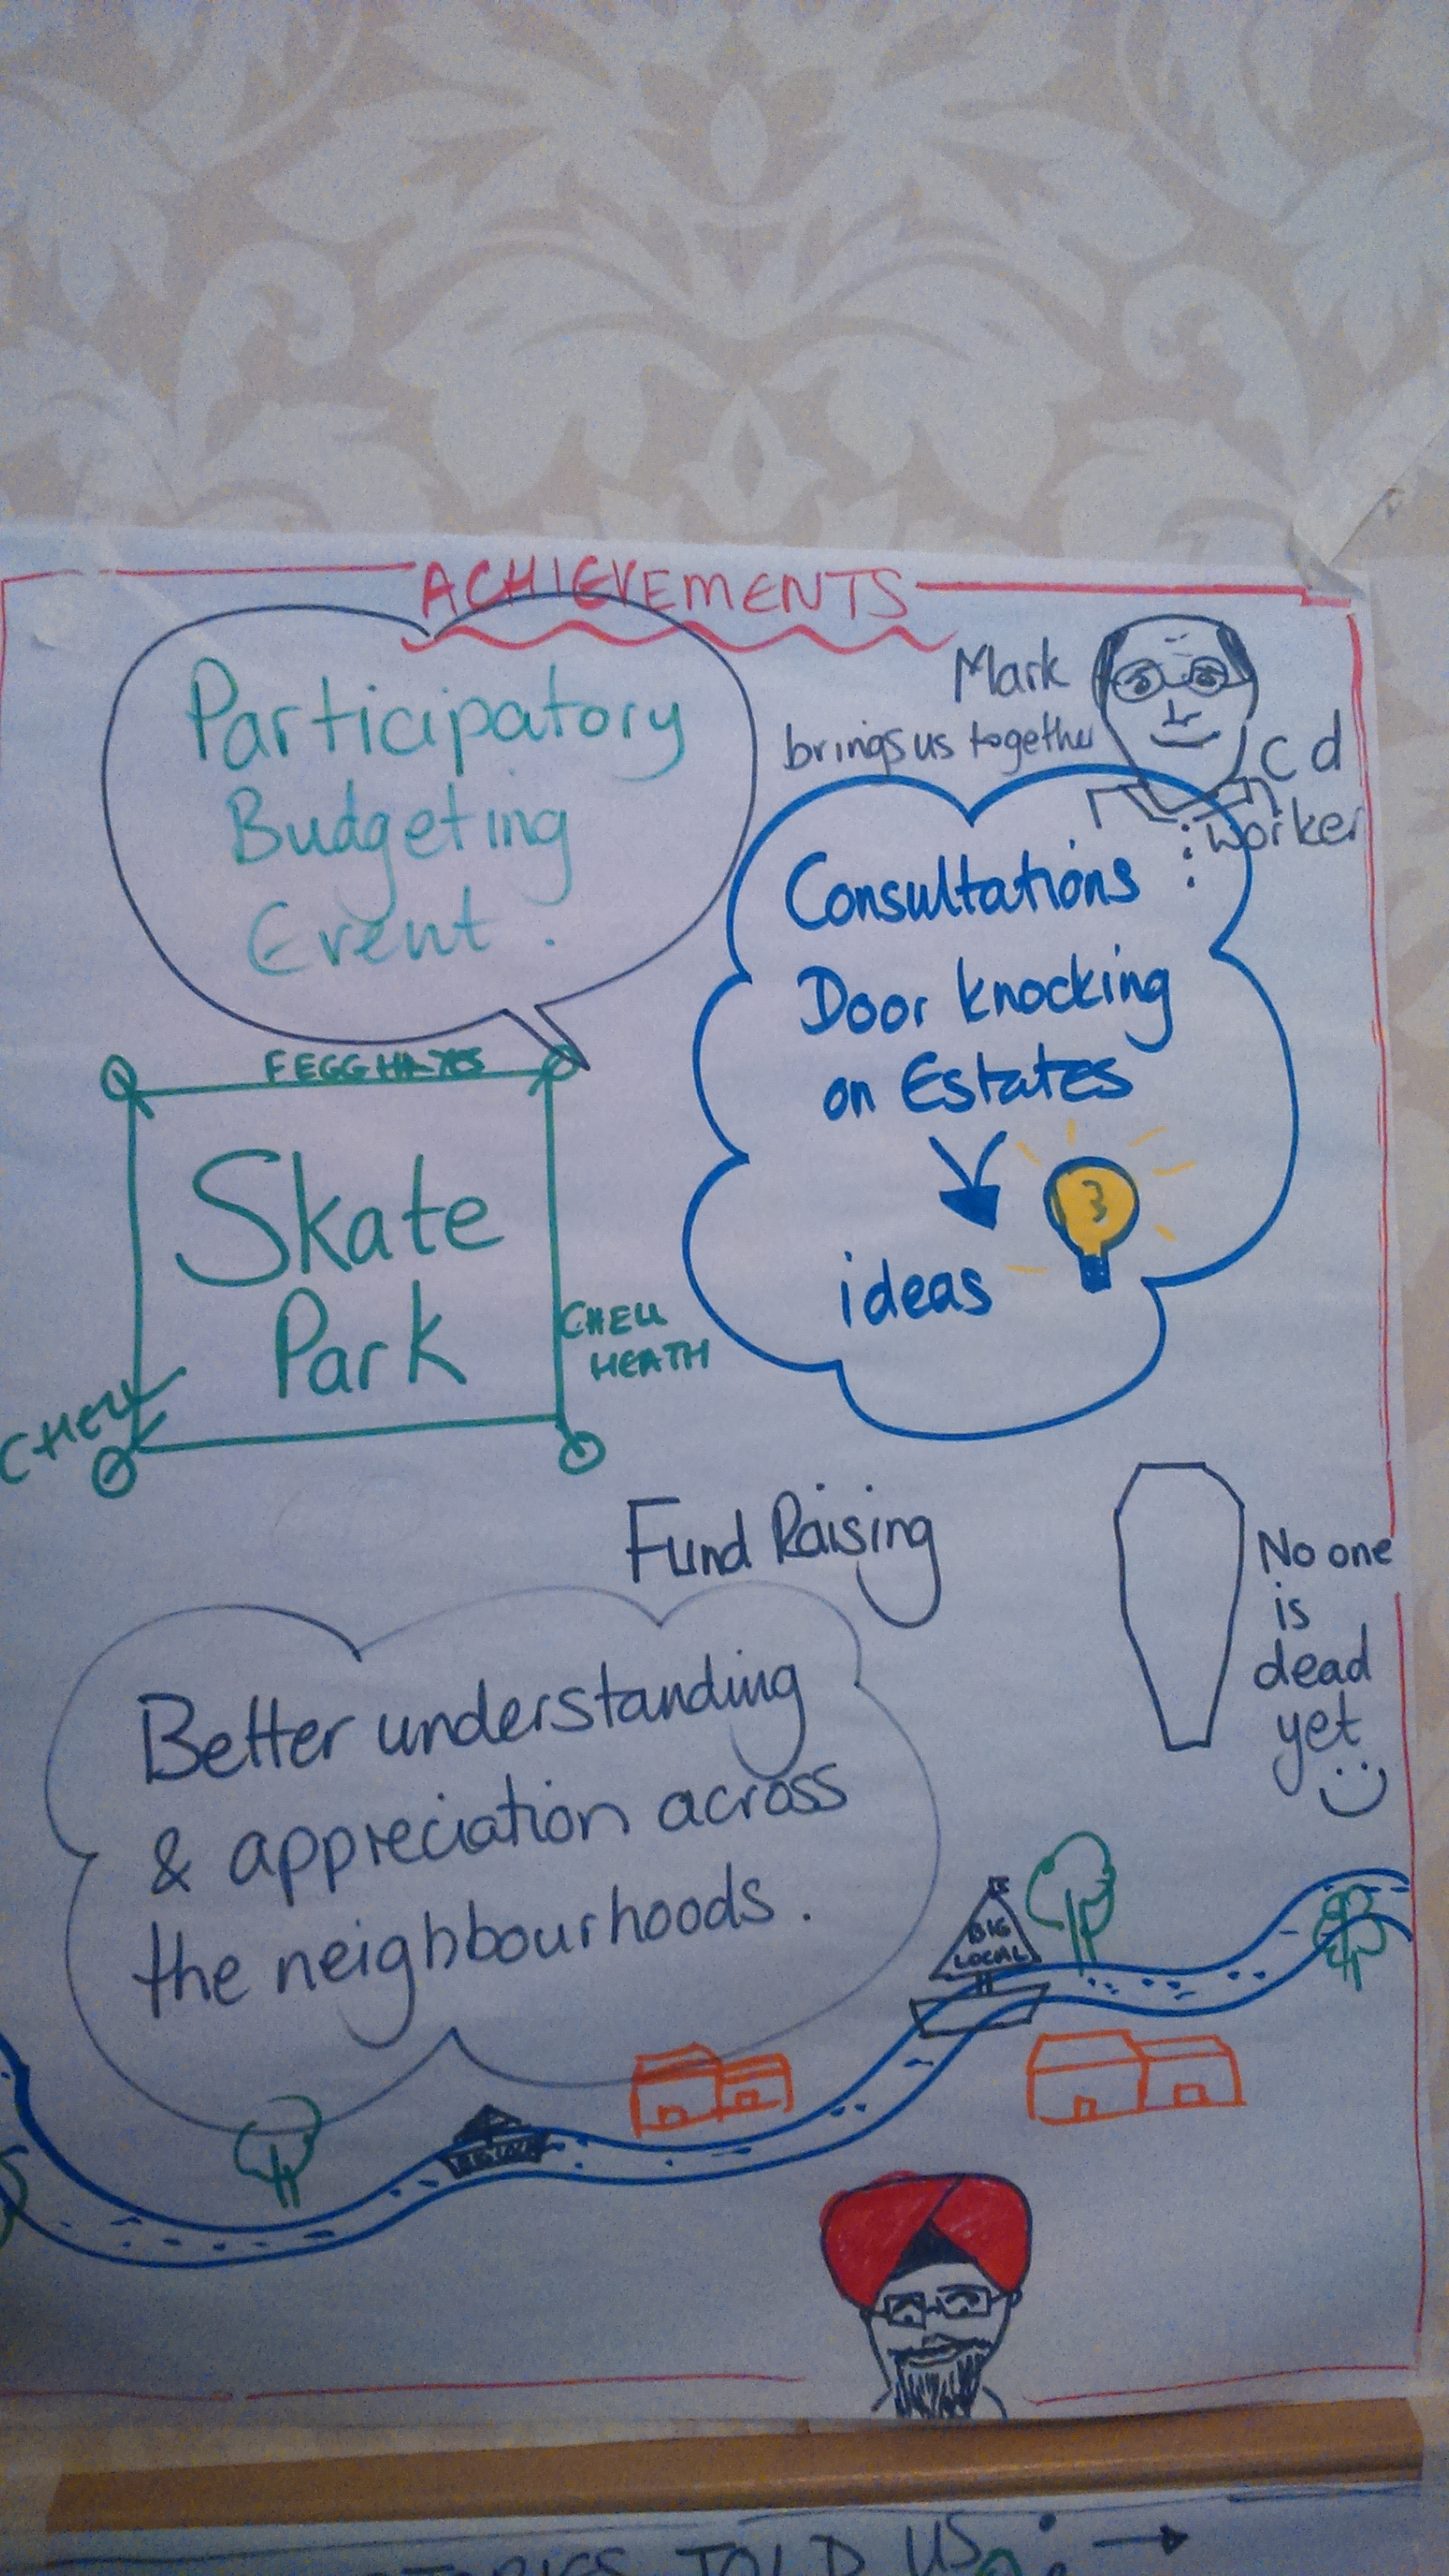 ACHIEVEMENTS
Participatory
Budgeting
Event.
Mark
brings us together
c d
worker
Consultations
Door knocking
on Estates
3
ideas
FEGG HAYES
Skate
Park
CHELL
HEATH
CHELL
Fund Raising
No one
is
dead
yet
Better understanding
& appreciation across
the neighbourhoods.
BIG
LOCAL
BIG LOCAL
TOLD US